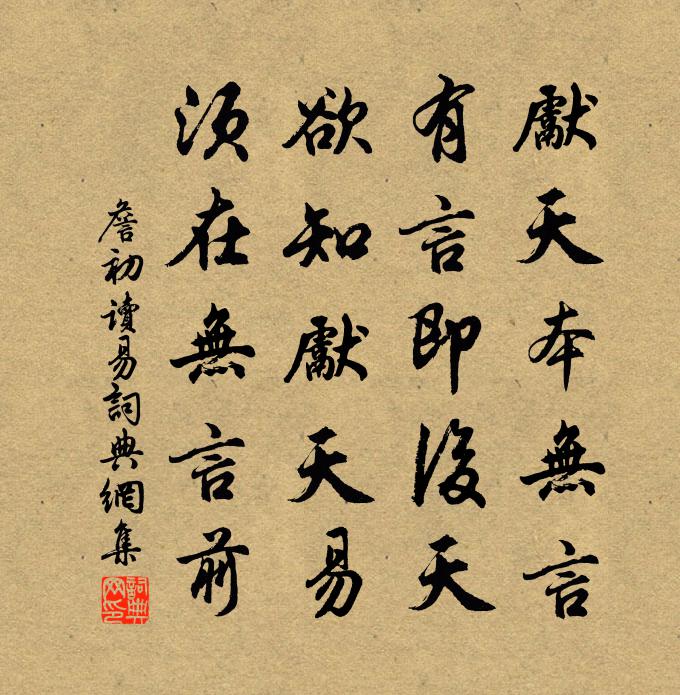 獻天本無言
有言即後天
欲知獻天易
須在無言前
詹初讀易詞典網集
詞典網印